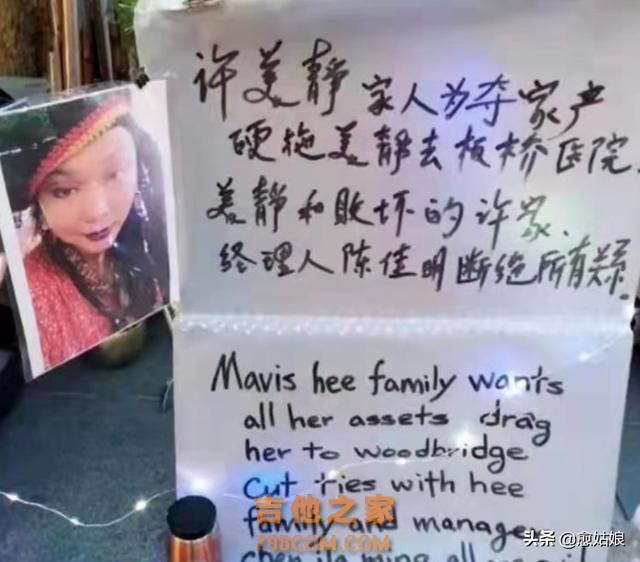 许美静家人为夺家产
硬拖美静去板桥医院.
美静和败坏的许家.
经理人陈佳明断绝所有关系.
Mavis hee family wants
all her assets drag
her to woodbridge
cut ties with hee
family and manager
chen jia ming all
吉他之家
798COM.COM
头条 @愈姑娘